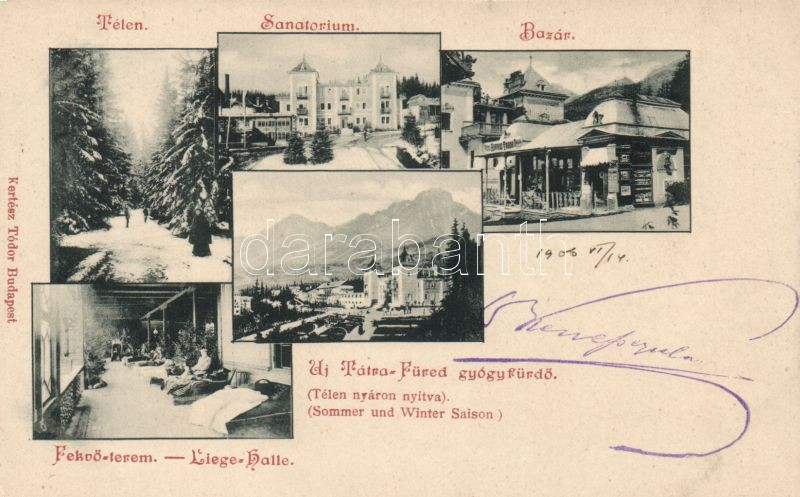 Télen.
Sanatorium.
Bazár.
darabanth
1906 VI/14.
Kertész Tódor Budapest.
Uj Tátra-Füred gyógyfürdő.
(Télen nyáron nyitva).
(Sommer und Winter Saison)
Fekvő-terem. — Liege-Halle.